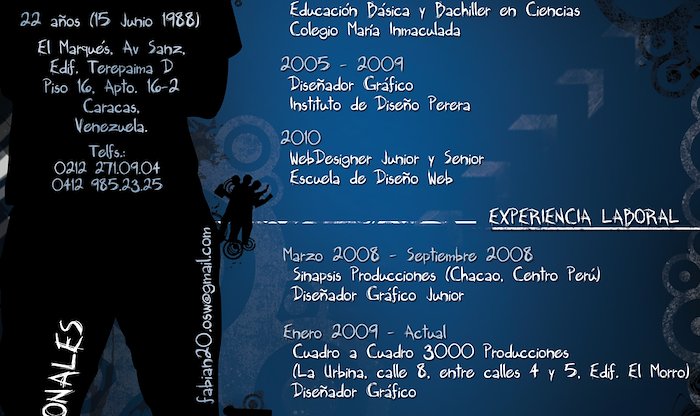 22 años (15 Junio 1988)
El Marqués, Av Sanz,
Edif. Terepaima D
Piso 16, Apto. 16-2
Caracas,
Venezuela.
Telfs.:
0212 271.09.04
0412 985.23.25
fabian20.osw@gmail.com
ONALES
Educación Básica y Bachiller en Ciencias
Colegio María Inmaculada
2005 - 2009
Diseñador Gráfico
Instituto de Diseño Perera
2010
WebDesigner Junior y Senior
Escuela de Diseño Web
EXPERIENCIA LABORAL
Marzo 2008 - Septiembre 2008
Sinapsis Producciones (Chacao, Centro Perú)
Diseñador Gráfico Junior
Enero 2009 - Actual
Cuadro a Cuadro 3000 Producciones
(La Urbina, calle 8, entre calles 4 y 5, Edif. El Morro)
Diseñador Gráfico